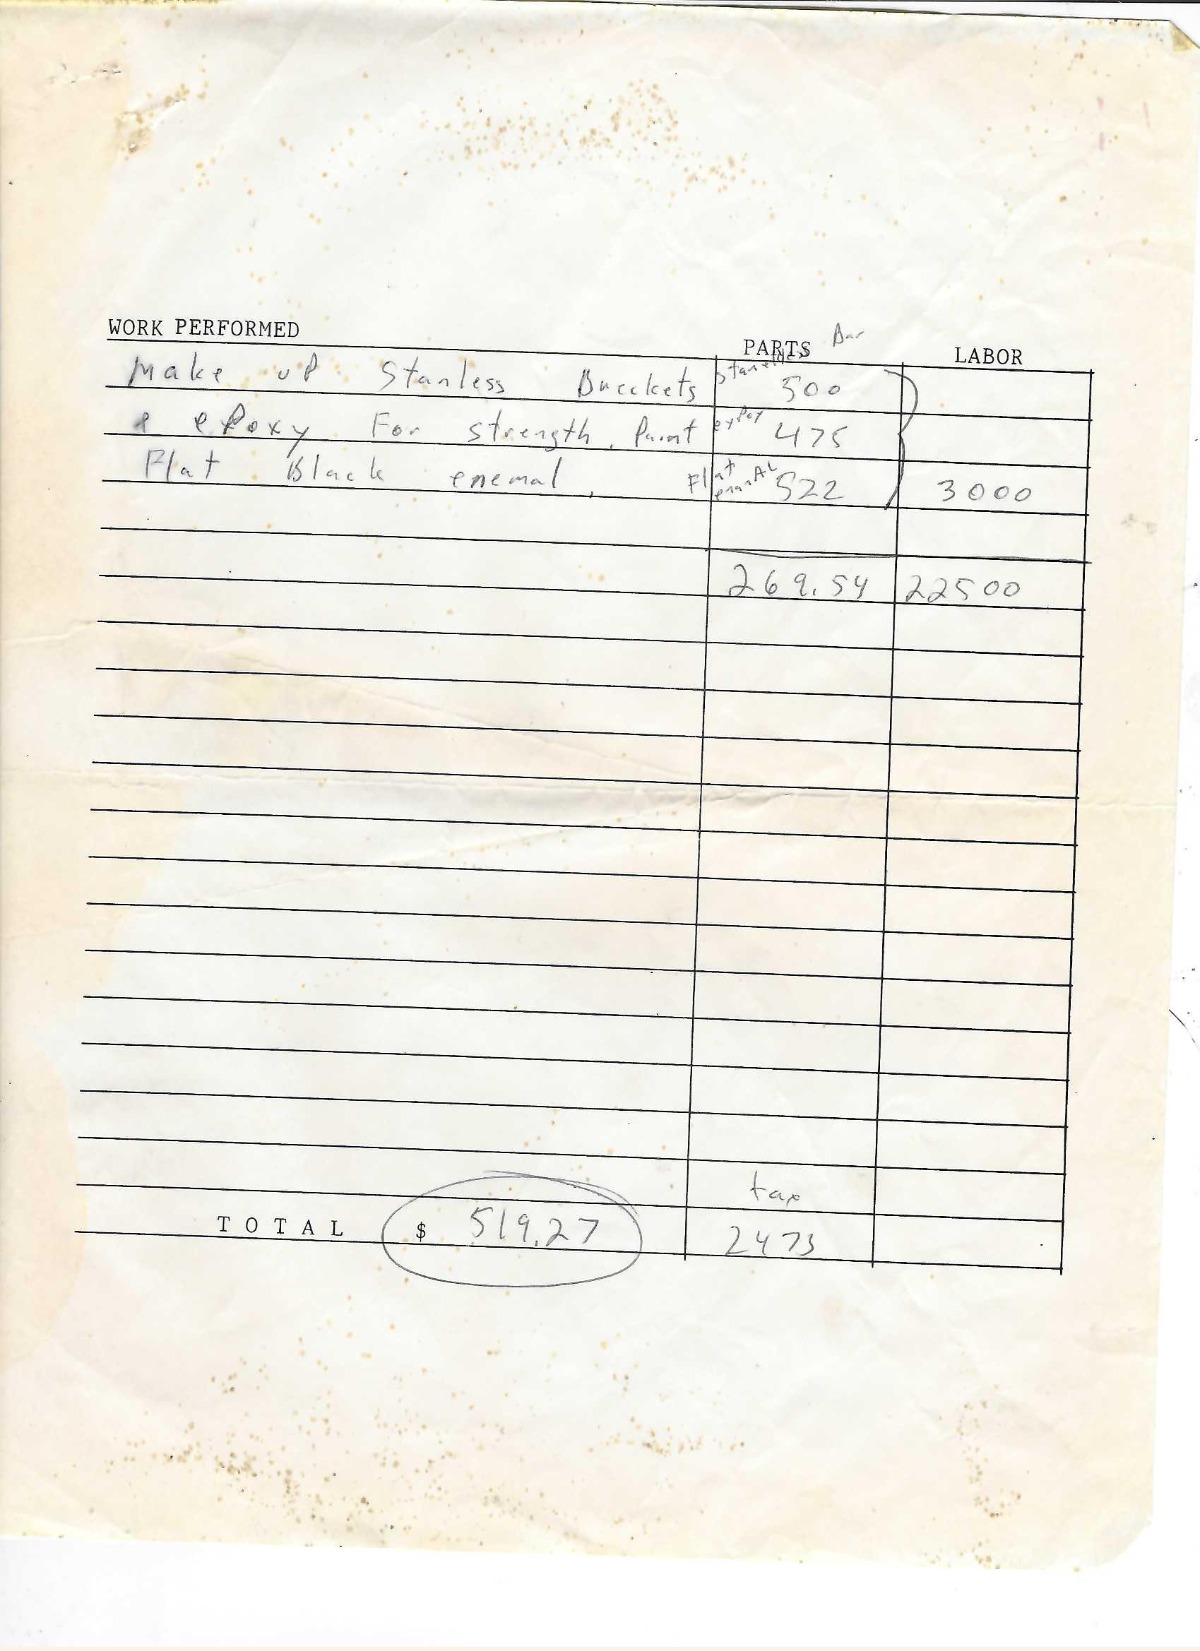 WORK PERFORMED PARTS Bar LABOR
Make up Stanless Brackets 500
& epoxy For strength. Paint 475
Flat Black enemal, Flat 522 3000
269.54 22500
tax
TOTAL $ 519.27 2473